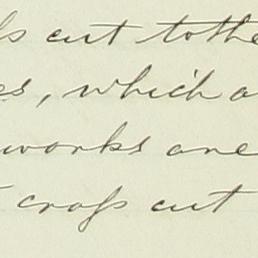 ls cut to the
es, which a
works are
crofs cut